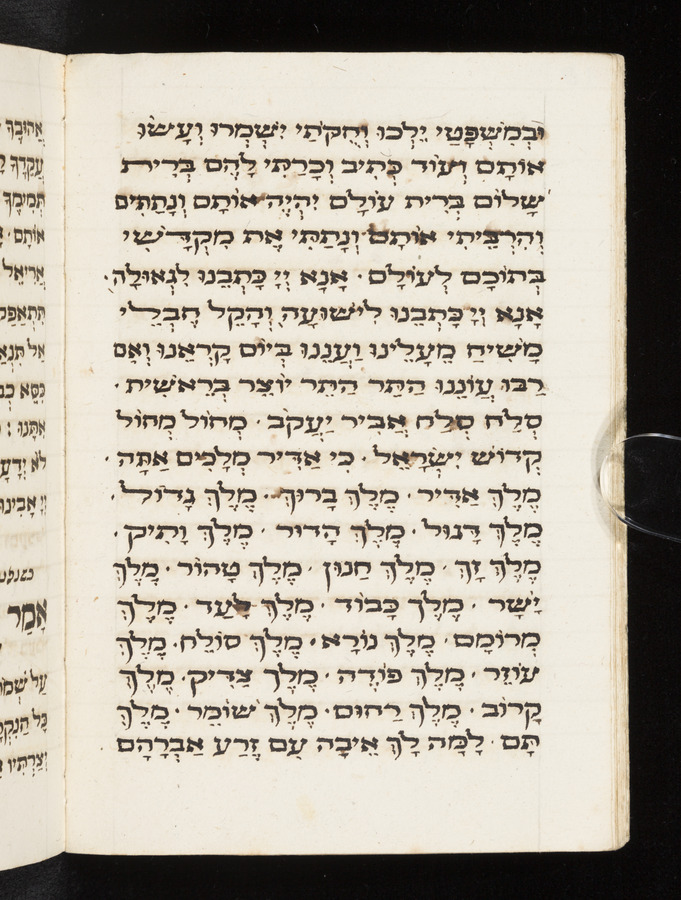 וּבְמִשְׁפָּטַי יֵלְכוּ וְחֻקֹּתַי יִשְׁמְרוּ וְעָשׂוּ
אוֹתָם וְעוֹד כְּתִיב וְכָרַתִּי לָהֶם בְּרִית
שָׁלוֹם בְּרִית עוֹלָם יִהְיֶה אוֹתָם וּנְתַתִּים
וְהִרְבֵּיתִי אוֹתָם וְנָתַתִּי אֶת מִקְדָּשִׁי
בְּתוֹכָם לְעוֹלָם · אָנָא יְיָ כָּתְבֵנוּ לִגְאוּלָה ·
אָנָא יְיָ כָּתְבֵנוּ לִישׁוּעָה וְהָקֵל חֶבְלֵי
מָשִׁיחַ מֵעָלֵינוּ וַעֲנֵנוּ בְּיוֹם קָרְאֵנוּ וְאִם
רַבּוּ עֲוֹנֵנוּ הַתֵּר הַתֵּר יוֹצֵר בְּרֵאשִׁית ·
סְלַח סְלַח אֲבִיר יַעֲקֹב · מְחוֹל מְחוֹל
קְדוֹשׁ יִשְׂרָאֵל · כִּי אַדִּיר מְלָכִים אַתָּה ·
מֶלֶךְ אַדִּיר · מֶלֶךְ בָּרוּךְ · מֶלֶךְ גָּדוֹל ·
מֶלֶךְ דָּגוּל · מֶלֶךְ הָדוּר · מֶלֶךְ וָתִיק ·
מֶלֶךְ זָךְ · מֶלֶךְ חַנּוּן · מֶלֶךְ טָהוֹר · מֶלֶךְ
יָשָׁר · מֶלֶךְ כָּבוֹד · מֶלֶךְ לָעַד · מֶלֶךְ
מְרוֹמָם · מֶלֶךְ נוֹרָא · מֶלֶךְ סוֹלֵחַ · מֶלֶךְ
עוֹזֵר · מֶלֶךְ פּוֹדֶה · מֶלֶךְ צַדִּיק · מֶלֶךְ
קָרוֹב · מֶלֶךְ רַחוּם · מֶלֶךְ שׁוֹמֵר · מֶלֶךְ
תָּם · לָמָּה לָךְ אֵיבָה עִם זֶרַע אַבְרָהָם